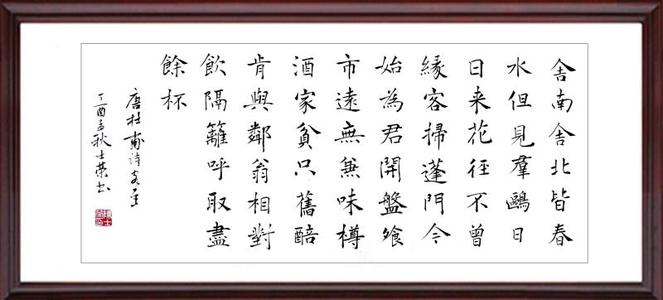 舍南舍北皆春
水但見羣鷗日
日来花徑不曾
緣客掃蓬門今
始為君開盤飧
市遠無兼味樽
酒家貧只舊醅
肯與鄰翁相對
飲隔籬呼取盡
餘杯
唐杜甫诗客至
丁酉孟秋士荣书